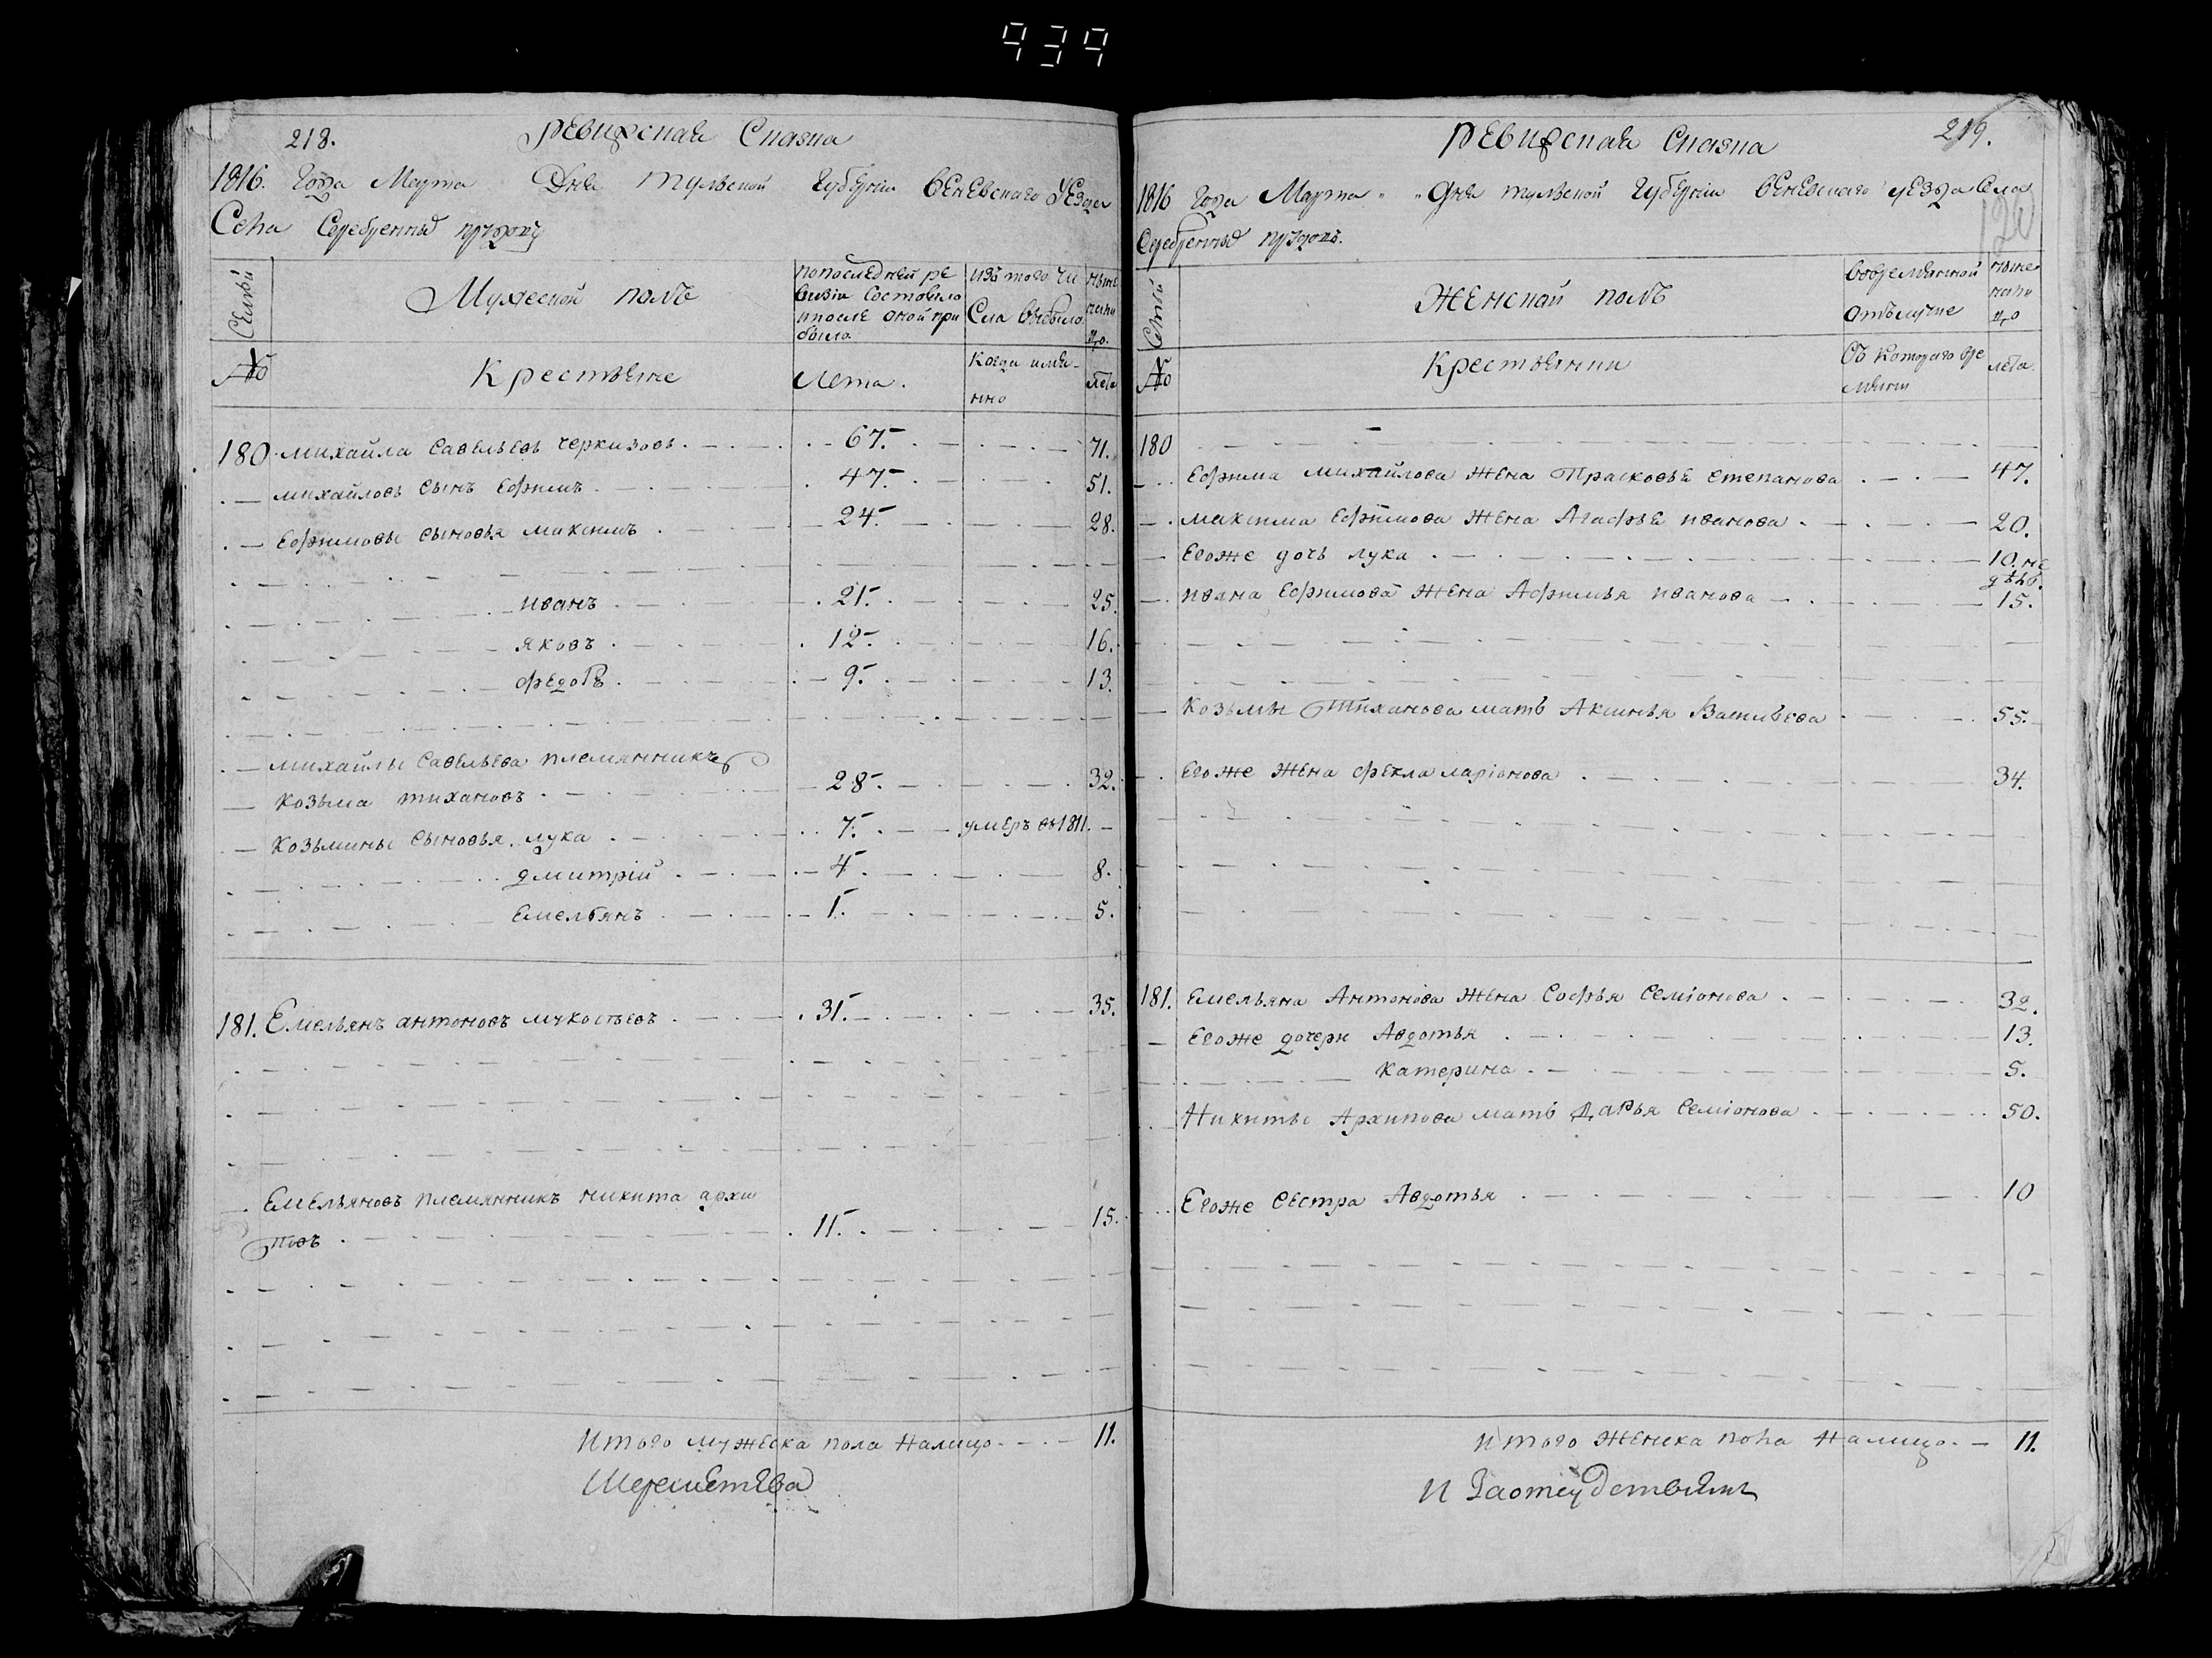 939
218.
Ревизская Сказка
1816. Года Марта Дня Тульской Губернии Веневского Уезда
Села Серебренных прудовъ
Семьи
Мужеской полъ
попоследней ре
визiи Состояло
ипосле оной при
было
изъ того Чи
Сла выбыло
ныне
нали
цо.
№
Крестьяне
Лета.
Когда имя-
нно
лета
180. михайла савельевъ черкизовъ. 67. 71.
михайловъ сынъ Ефимъ 47. 51.
Ефимовы сыновья максимъ 24. 28.
иванъ 21. 25.
яковъ 12. 16.
федоръ 9. 13.
михайлы савельева племянникъ
козьма тихановъ 28. 32.
козьмины сыновья. лука 7. умеръ въ 1811.
дмитрiй 4. 8.
Емельянъ 1. 5.
181. Емельянъ антоновъ 31. 35.
Емельяновъ племянникъ никита архи
повъ 11. 15.
Итого мужеска пола налицо 11.
Шереметева
219.
Ревизская Сказка
1816 Года Марта " " Дня Тульской Губернии Веневскаго уезда Села
Серебренных прудовъ.
120
Семьи
Женской полъ
Вовременной
отълучке
ныне
нали
цо
№
Крестьянки
Съ котораго вре
мяни
лета.
180
Ефима михайлова жена Прасковья степанова 47.
максима Ефимова жена Агафья иванова 20.
Егоже дочь лука 10. не
дель.
ивана Ефимова жена Афимья иванова 15.
козьмы Тиханова мать Аксинья Васильева 55.
Егоже жена фекла ларiонова 34.
181. Емельяна Антонова жена Софья семiонова 32.
Егоже дочери Авдотья 13.
катерина 5.
Никиты Архипова мать Дарья семiонова 50.
Егоже сестра Авдотья 10
Итого женска пола налицо. 11.
И